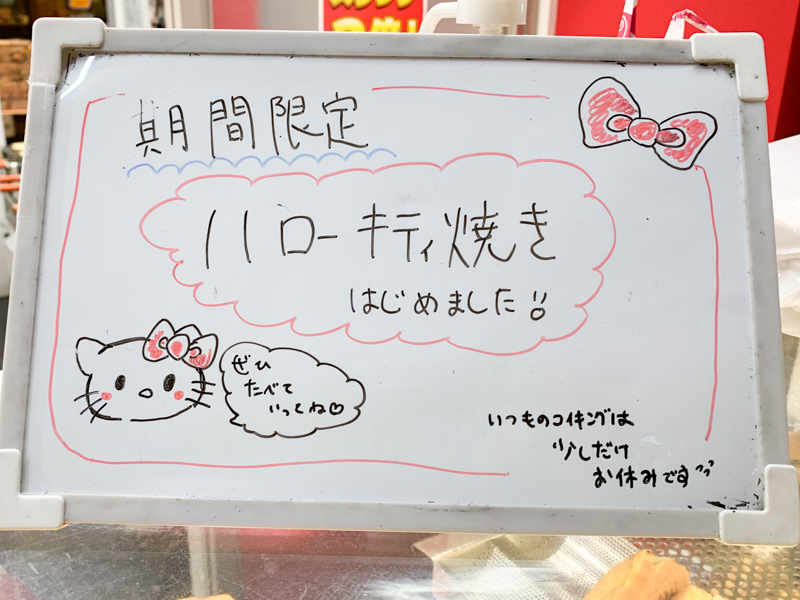 期間限定
ハローキティ焼き
はじめました!!
ぜひ
たべて
いってね♡
いつものコイキングは
少しだけ
お休みです